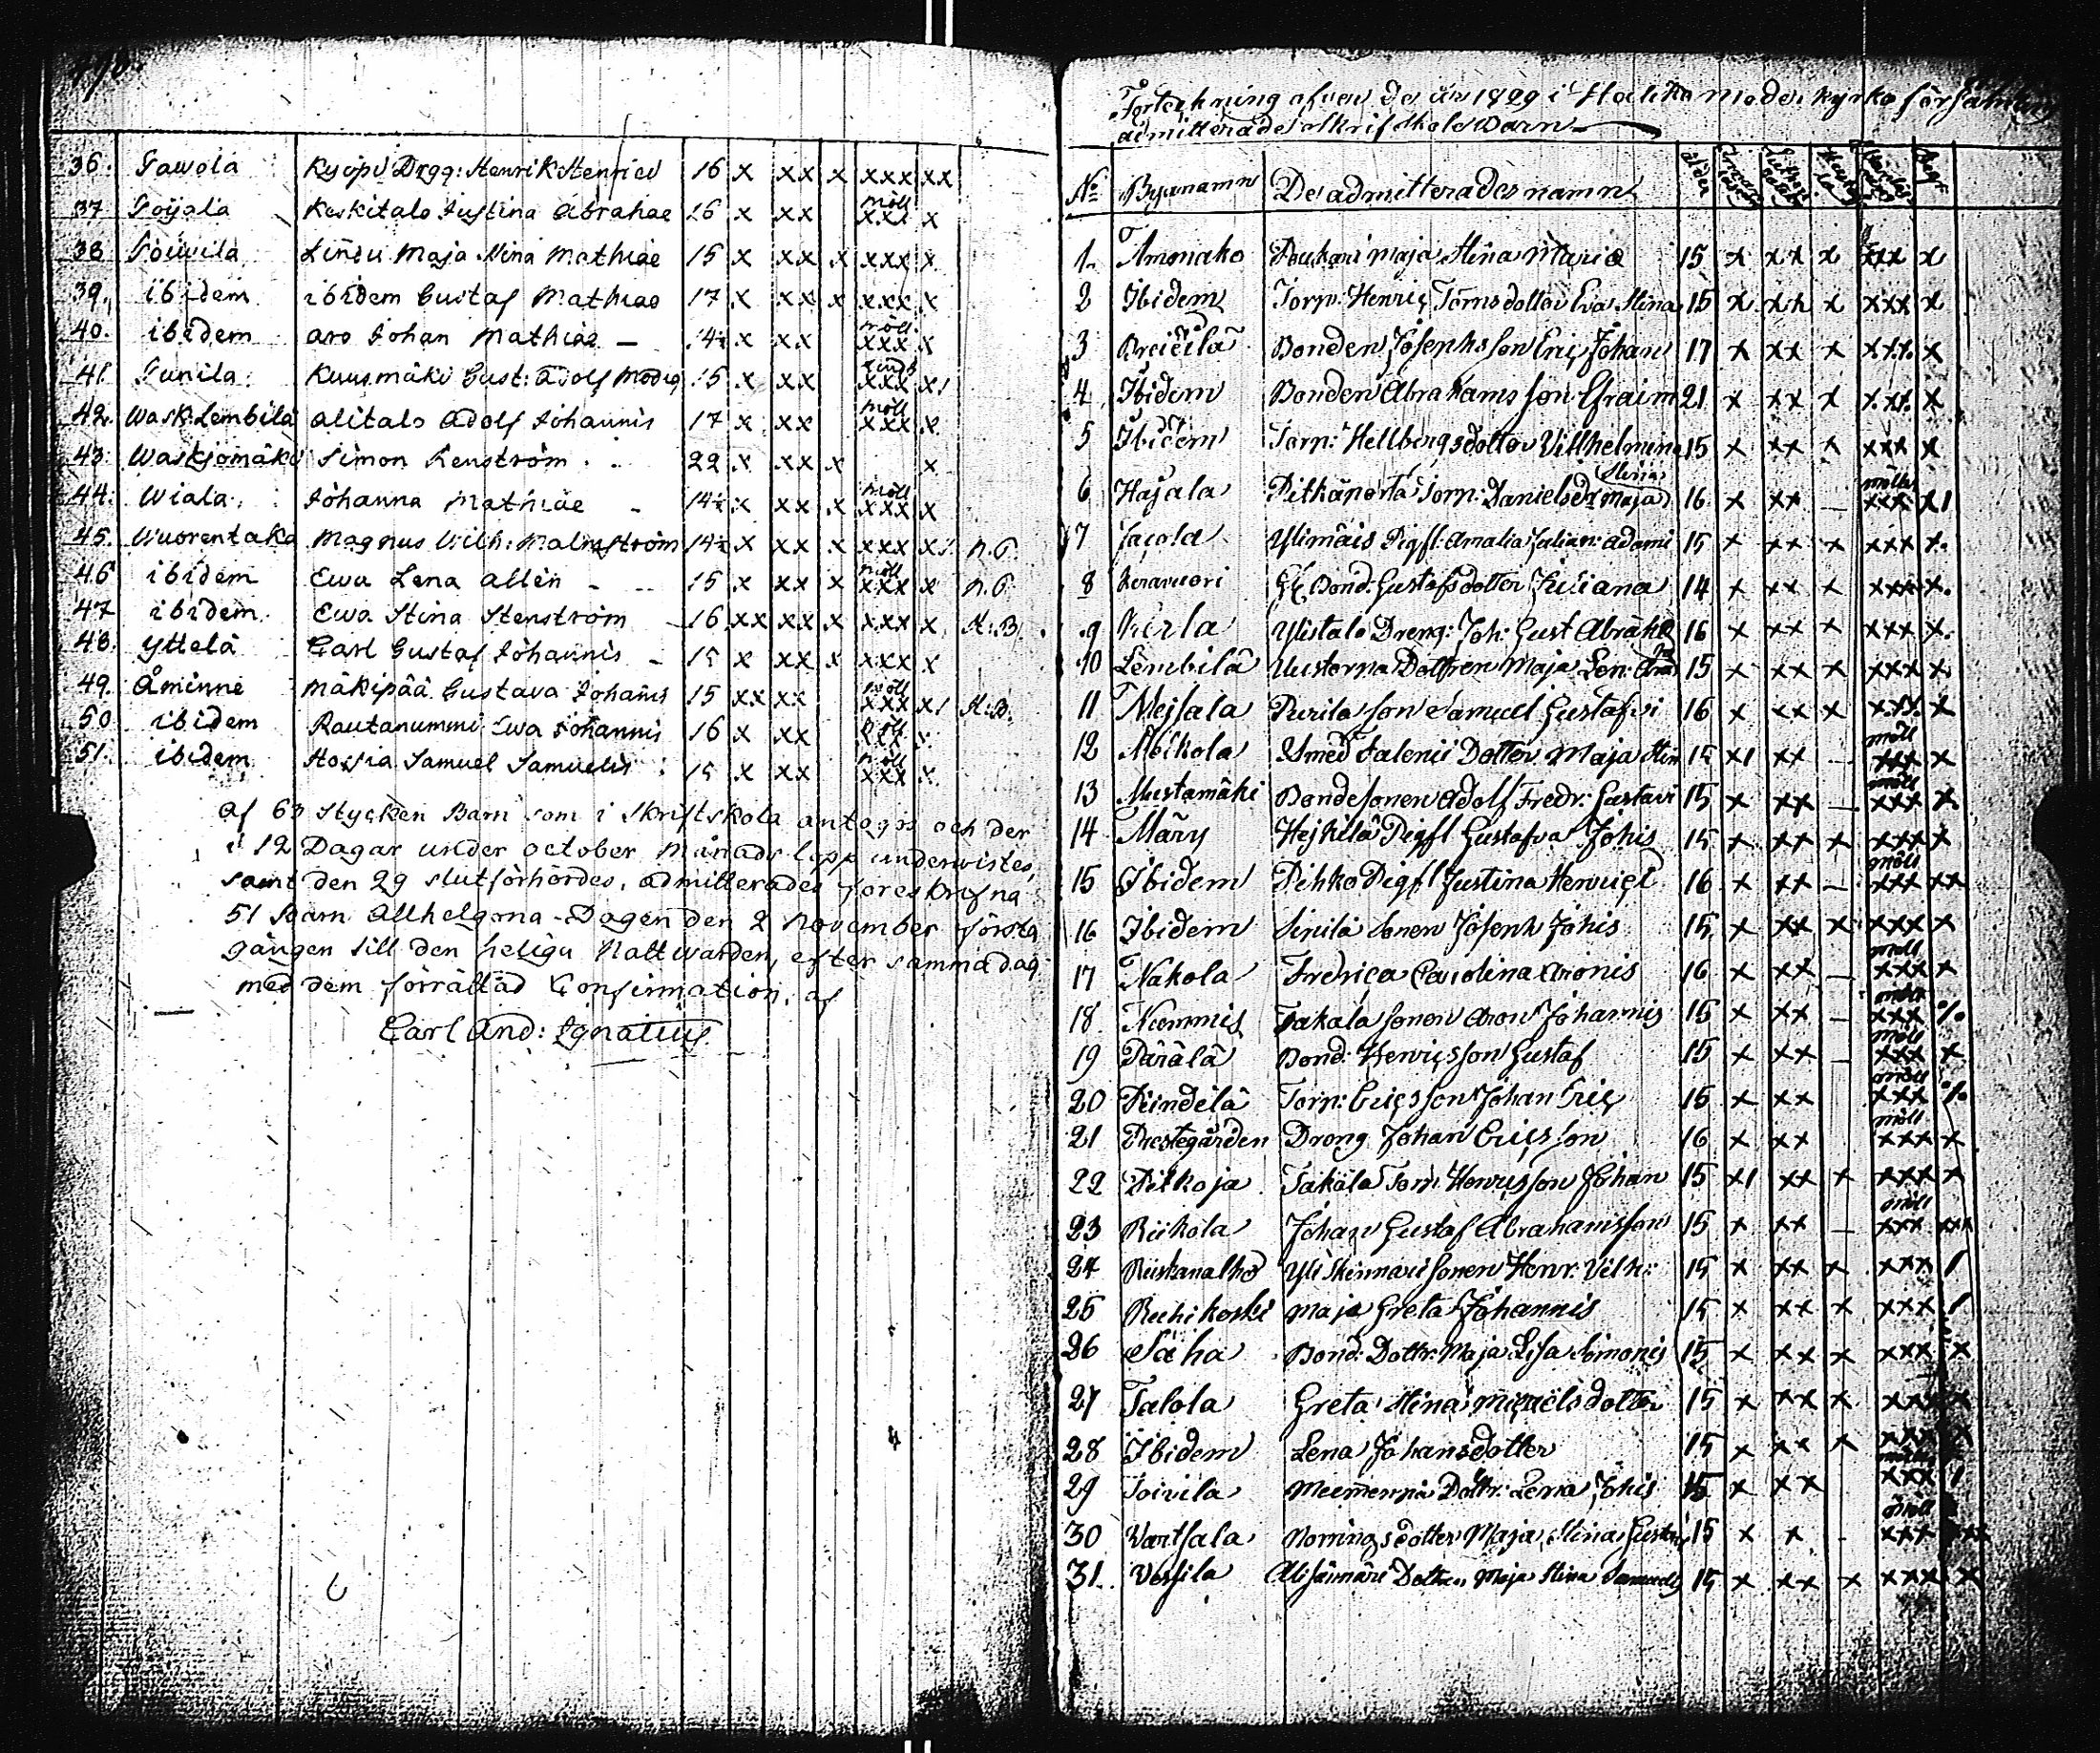 36. Tawola Kyöpi Drgg: Henrik Henrici 16 x xx x xxx xx
37 Toijala Keskitalo Justina Abrahae 16 x xx möll xxx x
38 Toiwila Liñcu Maja Stina Mathiae 15 x xx x xxx x
39. ibidem ibidem Gustaf Mathiae 17 x xx x xxx x
40. ibidem aro Johan Mathiae — 14½ x xx möll xxx x
41 Tunila Kuusmäki Gust: Adolf 15 x xx xxx x/
42. Wask: Lembilä Alitalo Adolf Johannis 17 x xx möll xxx x
43. Waskjomäki Simon Renström 22 x xx x x
44. Wiala Johanna Mathiae - 14½ x xx x möll xxx x
45. Wuorentaka Magnus Wilh: Malmström 14½ x xx x xxx x/ n.P.
46 ibidem Ewa Lena Allén - 15 x xx x möll xxx x n.P.
47 ibidem Ewa Stina Stenström 16 xx xx x xxx x K:B.
48. Yttelä Carl Gustaf Johannis - 15 x xx x xxx x
49. Åminne Mäkipää Gustava Johañis 15 xx xx möll xxx x/ K:B.
50 ibidem Rautanummi Ewa Johannis 16 x xx x
51. ibidem Hossia Samuel Samuelis 15 x xx möll xxx x
Af 63 Stycken Barn som i Skriftskola antogos och der
i 12 Dagar under October Månads lopp underwistes,
samt den 29 slutförhördes, admitterades föreskrefna
51 Barn Allhelgona-Dagen den 2 November första
gången till den heliga Nattwarden, efter samma dag
med dem förrättad Confirmation, af
Carl And: Ignatius
Förteckning öfwer de år 1829 i Halikko moder kyrko församling
admitterades Skriftskole Barn
No Byanamn De admitterades namn ålder
1. Ammako maja Stina 15 x xx x xxx x
2 Ibidem Torp: Henriç Törnsdotter Eva Stina 15 x xx x xxx x
3 Breidilä Bonden Josephsson Eriç Johan 17 x xx x xxx x
4 Ibidem Bonden Abrahamsson Efraim 21 x xx x xxx x
5 Ibidem Torp: Hellbergsdotter Villhelmina 15 x xx x xxx x
6 Hajala Pitkäporta Torp: Danielsdr Maja Stina 16 x xx — möller xxx x/
7 Jaçola Ylimäis Pigfl: Amalia Julian: Adami 15 x xx x xxx x.
8 Keravuori Bond: Gustafsdotter Juliana 14 x xx x xxx x.
9 Kirla Ylistalo Dreng: Joh: Gust Abrahe 16 x xx x xxx x.
10 Lembilä Uustorpa Dottren Maja Len: 15 x xx x xxx x
11 Mejsala Purila son Samuel Gustafvi 16 x xx x xxx x
12 Meikola Smed Salenii Dotter Maja Stin 15 x/ xx — möll xxx x
13 Mustamäki Bondesonen Adolf Fredr: Gustavi 15 x xx — möll xxx x
14 Märy Hejkilä Pigfl Gustafva Johis 15 x xx x xxx x
15 Ibidem Pihko Pigfl Justina Henriçi 16 x xx — möll xxx xx
16 Ibidem Sinilä Sonen Joseph Johis 15 x xx x xxx x
17 Nakola Fredrica Carolina Aronis 16 x xx — möll xxx x
18 Nummis Takala sonen Aron Johannis 15 x xx — xxx
19 Pärälä Bond: Henriçsson Gustaf 15 x xx — möll xxx x
20 Piindilä Torp: Eriçsson Johan Eriç 15 x xx möll xxx
21 Prestegården Dreng Johan Eriçsson 16 x xx möll xxx x
22 Pitkoja Takala Torp Henriçsson Johan 15 x/ xx x xxx x
23 Riikola Johan Gustaf Abrahamsson 15 x xx — möll xxx xxx
24 Yli Skinnari sonen Henr: Vilh: 15 x xx x xxx /
25 Ruhikoski Maja Greta Johannis 15 x xx x xxx /
26 Saha Bond: Dottr: Maja Lisa Simonis 15 x xx x xxx x
27 Talola Greta Stina Miçaelsdotter 15 x xx x xxx x
28 Ibidem Lena Johansdotter 15 x xx x xxx x
29 Toivila Dottr: Lena Johis 15 x xx xxx /
30 Vartsala Norringsdotter Maja Stina 15 x x - möll xxx xx
31. Vessila Dottren Maja Stina Samuelis 15 x xx x xxx x